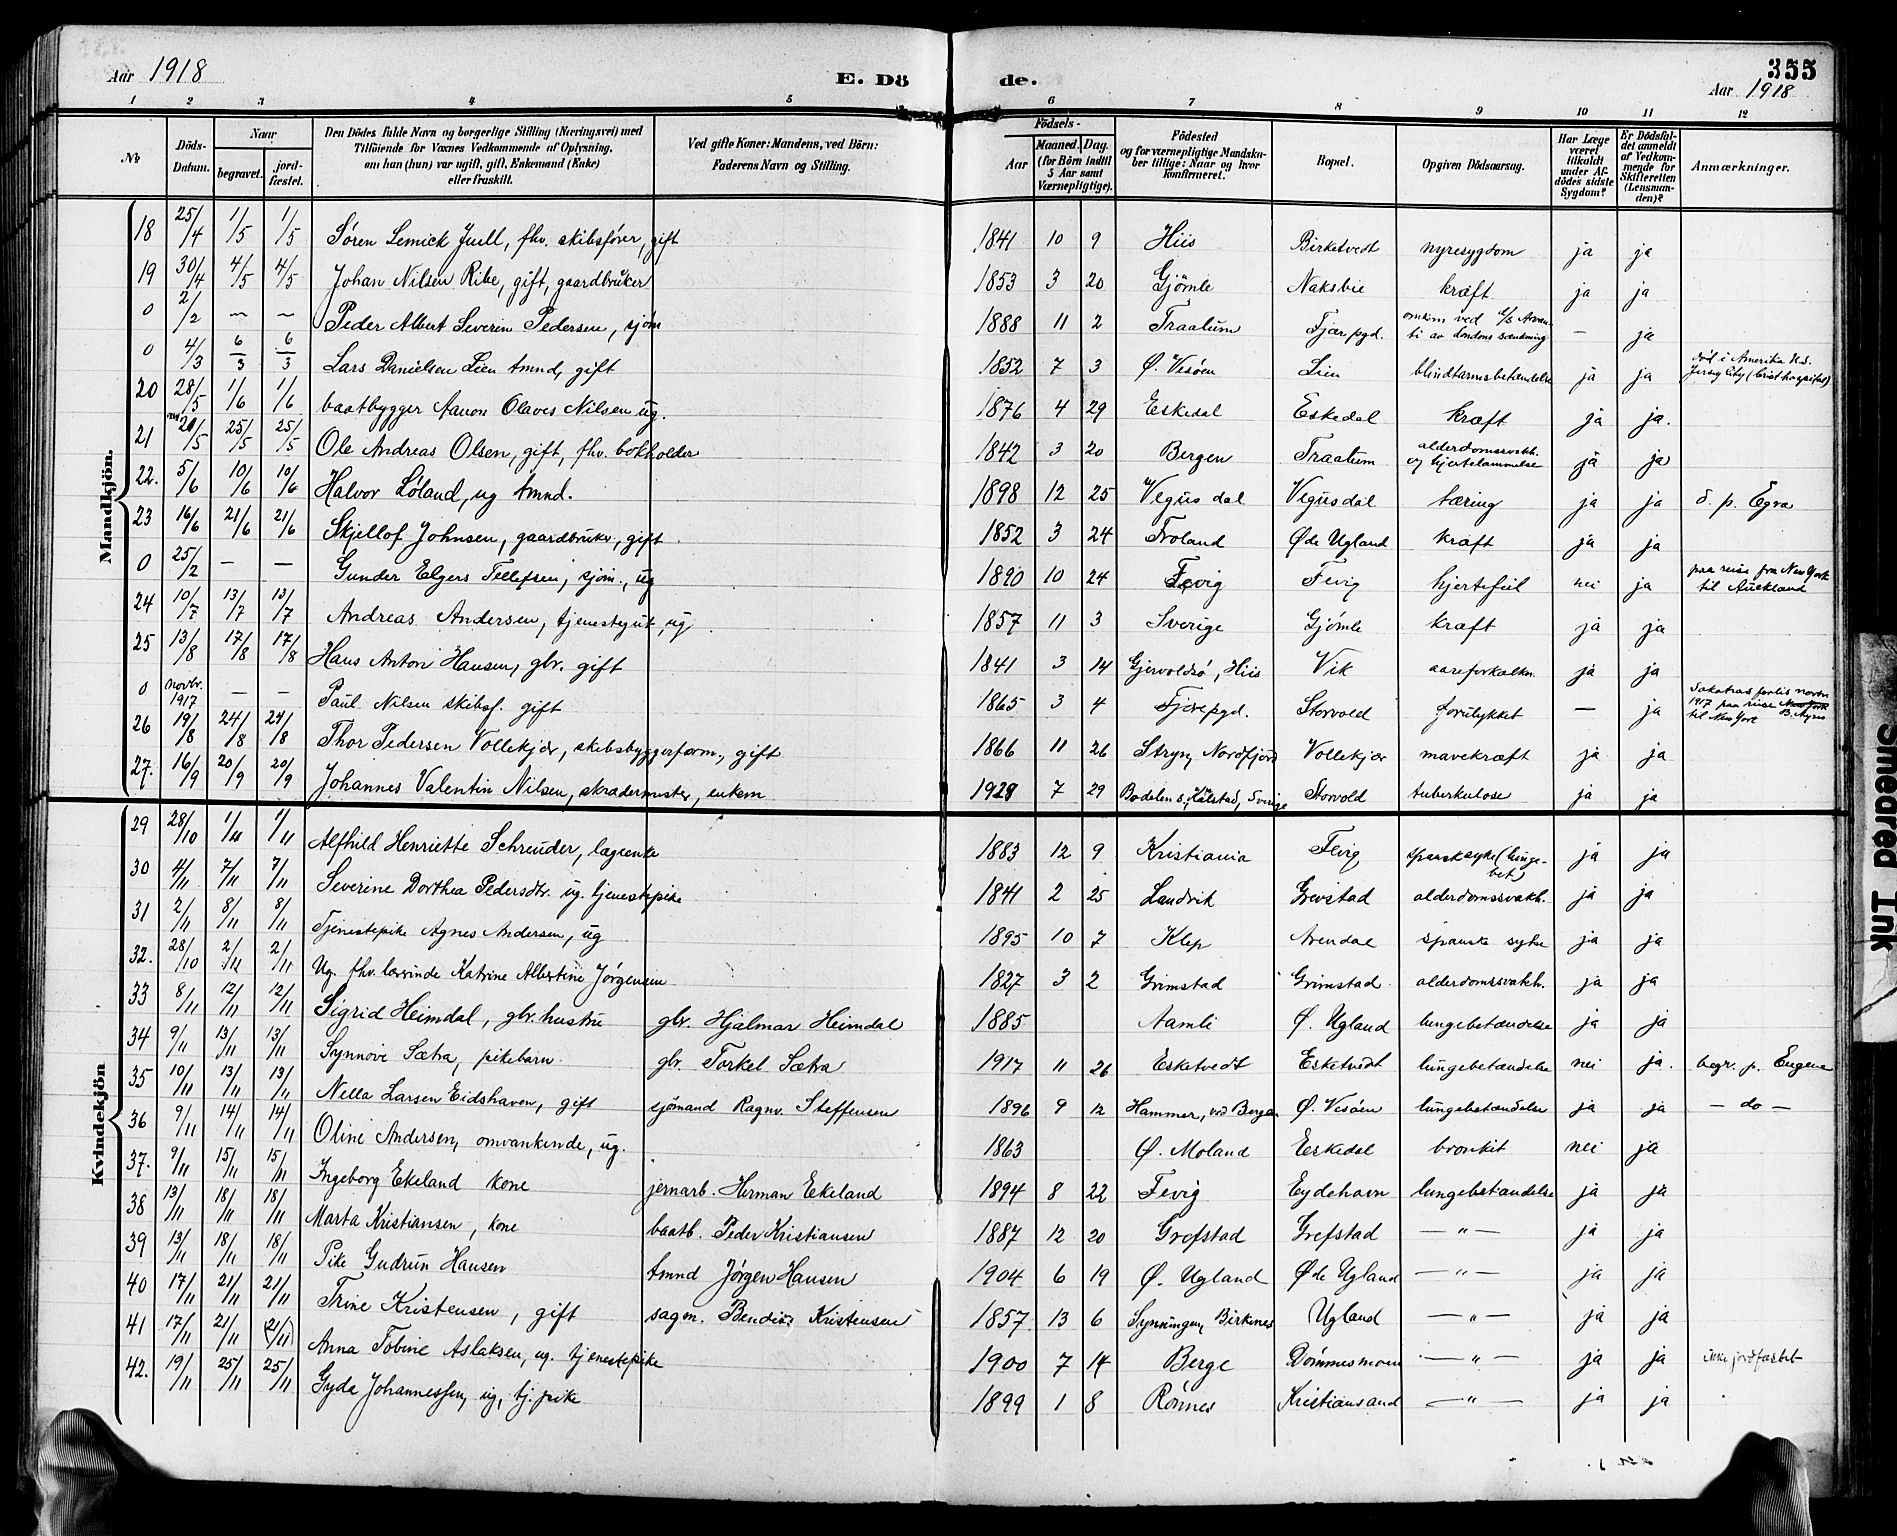 Aar 1918
E. Dö de.
355
Aar 1918
1 2 3 4 5 6 7 8 9 10 11 12
No
Döds-Datum.
Naar
begravet.
jord-fæstet.
Den Dödes fulde Navn og borgerlige Stilling (Næringsvei) med
Tilföiende for Voxnes Vedkommende af Oplysning,
om han (hun) var ugift, gift, Enkemand (Enke)
eller fraskilt.
Ved gifte Koner: Mandens, ved Börn:
Faderens Navn og Stilling.
Födsels-
Aar
Maaned. Dag.
(for Börn indtil
5 Aar samt
Værnepligtige).
Födested
og for værnepligtige Mandska-
ber tillige: Naar og hvor
konfirmeret.
Bopæl.
Opgiven Dödsaarsag.
Har Læge
været
tilkaldt
under Af-
dödes sidste
Sygdom?
Er Dödsfal-
det anmeldt
af Vedkom-
mende for
Skifteretten
(Lensman-
den)?
Anmærkninger.
Mandkjön.
18 25/4 1/5 1/5 Søren Lemick Juell, fhv. skibsfører, gift 1841 10 9 Hiis Birketvedt nyresygdom ja ja
19 30/4 4/5 4/5 Johan Nilsen Ribe, gift, gaardbruker 1853 3 20 Gjømle Naksbie kræft ja ja
0 2/2 — — Peder Albert Severin Pedersen, sjøm 1888 11 2 Traatum Fjære pgd. omkom ved sænkning — ja
0 4/3 6/3 6/3 Lars Danielsen Lien tmnd, gift 1852 7 3 Ø. Vesøen Lien blindtarmsbetændelse ja ja død i Amerika N.S. Jersey City (Crist hospital)
20 28/5 1/6 1/6 baatbygger Aanon Olaves Nilsen ug. 1876 4 29 Eskedal Eskedal kræft ja ja.
21 20/5 25/5 25/5 Ole Andreas Olsen, gift, fhv. bokholder 1842 3 20 Bergen Traatum alderdomssvakh. og hjertelammelse ja ja
22. 5/6 10/6 10/6 Halvor Løland, ug tmnd. 1898 12 25 Vegusdal Vegusdal tæring ja ja d. p. Egra
23 16/6 21/6 21/6 Skjellof Johnsen, gaardbruker, gift 1852 3 24 Froland Øde Ugland kræft ja ja
0 25/2 — — Gunder Elgers Tellefsen, sjøm., ug 1890 10 24 Fevig Fevig hjertefeil nei ja paa reise fra New York til Auckland
24 10/7 13/7 13/7 Andreas Andersen, tjenestegut, ug 1857 11 3 Sverige Gjømle kræft ja ja
25 13/8 17/8 17/8 Hans Anton Hansen, gbr. gift 1841 3 14 Gjervoldsø, Hiis Vik aareforkalkn. ja ja
0 novbr. 1917 — — Paul Nilsen skibsf. gift 1865 3 4 Fjære pgd. Storvold forulykket — ja forlis novbr 1917 paa reise B. Ayres til New York
26 19/8 24/8 24/8 Thor Pedersen Vollekjær, skibsbyggerform., gift 1866 11 26 Stryn, Nordfjord Vollekjær mavekræft ja ja
27. 16/9 20/9 20/9 Johannes Valentin Nilsen, skrædermester, enkem 1928 7 29 Halstad, Sverige Storvold tuberkulose ja ja
Kvindekjön
29 28/10 1/11 1/11 Alfhild Henriette Schreuder, lægeenke 1883 12 9 Kristiania Fevig spansksyke (lungebet) ja ja
30 4/11 7/11 7/11 Severine Dorthea Pedersdtr. ug. tjenestepike 1841 2 25 Landvik Grevstad alderdomssvakh. ja ja
31 2/11 8/11 8/11 Tjenestepike Agnes Andersen, ug 1895 10 7 Klep Arendal spanske syke ja ja
32. 28/10 2/11 2/11 Ug. fhv. lærerinde Katrine Albertine Jørgensen 1827 3 2 Grimstad Grimstad alderdomssvakh. ja ja
33 8/11 12/11 12/11 Sigrid Heimdal, gbr. hustru gbr. Hjalmar Heimdal 1885 Aamli Ø. Ugland lungebetændelse ja ja
34 9/11 13/11 13/11 Synnøve Sætra, pikebarn gbr. Torkel Sætra 1917 11 26 Esketvedt Esketvedt lungebetændelse nei ja. begr. p. Eugene
35 10/11 13/11 13/11 Nella Larsen Eidshaven, gift sjømand Ragnv. Steffensen 1896 9 12 Hammer, ved Bergen Ø. Vesøen lungebetændelse ja ja — do —
36 9/11 14/11 14/11 Oline Andersen, omvankende, ug. 1863 Ø. Moland Eskedal bronkit nei ja
37. 9/11 15/11 15/11 Ingeborg Ekeland kone jernarb. Herman Ekeland 1894 8 22 Fevig Eydehavn lungebetændelse ja ja
38 13/11 18/11 18/11 Marta Kristiansen, kone baatb. Peder Kristiansen 1887 12 20 Grefstad Grefstad — " — ja ja
39 13/11 18/11 18/11 Pike Gudrun Hansen tmnd Jørgen Hansen 1904 6 19 Ø. Ugland Øde Ugland — " — ja ja
40 17/11 21/11 21/11 Trine Kristensen, gift sagm. Bendix Kristensen 1857 13 6 Synningen, Birkenes Ugland — " — ja ja
41 17/11 21/11 (21/11) Anna Tobine Aslaksen, ug. tjenestepike 1900 7 14 Berge Dømmesmoen — " — ja ja ikke jordfæstet
42. 19/11 25/11 25/11 Gyda Johannessen, ug, tj. pike 1899 1 8 Rønnes Kristiansand — " — ja ja
Smeared Ink